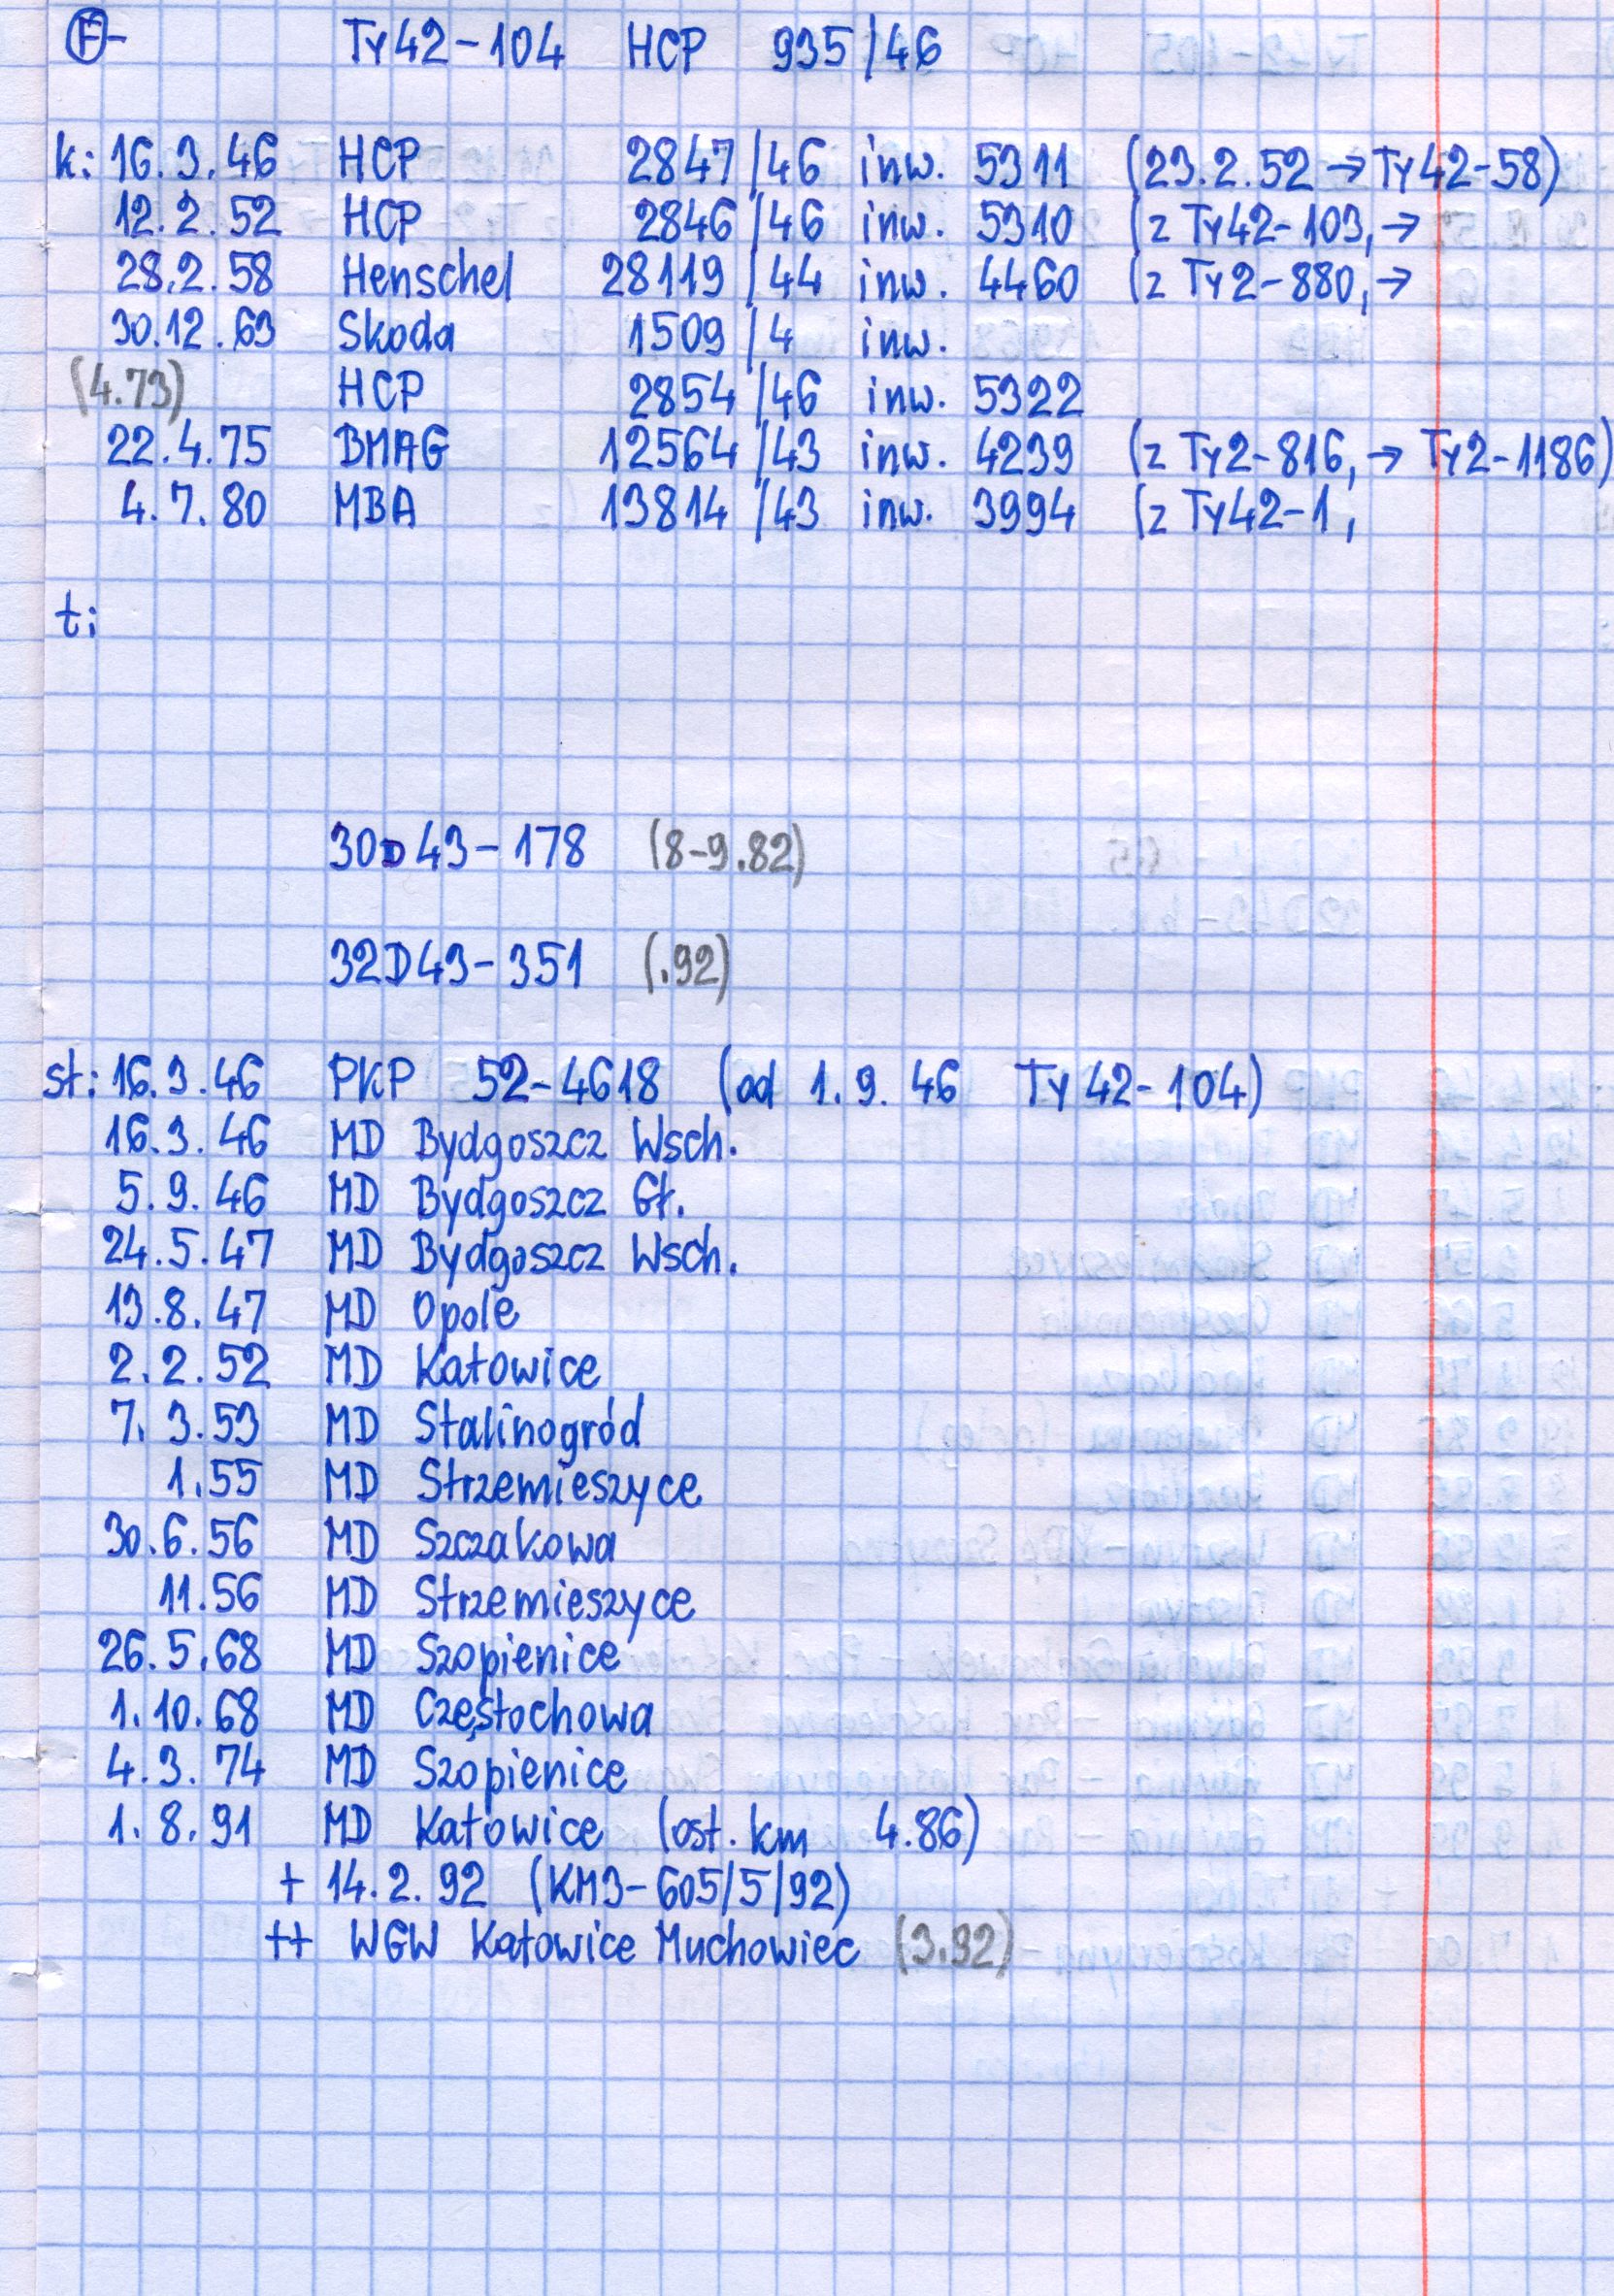 Ⓕ- Ty42-104 HCP 935/46
k: 16.3.46 HCP 2847/46 inw. 5311 (23.2.52 → Ty42-58)
12.2.52 HCP 2846/46 inw. 5310 (z Ty42-103, →
28.2.58 Henschel 28119/44 inw. 4460 (z Ty2-880, →
30.12.63 Skoda 1509/4 inw.
(4.73) HCP 2854/46 inw. 5322
22.4.75 BMAG 12564/43 inw. 4239 (z Ty2-816, → Ty2-1186)
4.7.80 MBA 13814/43 inw. 3994 (z Ty42-1,
t:
30D43-178 (8-9.82)
32D43-351 (.92)
st: 16.3.46 PKP 52-4618 (od 1.9.46 Ty42-104)
16.3.46 MD Bydgoszcz Wsch.
5.9.46 MD Bydgoszcz Gł.
24.5.47 MD Bydgoszcz Wsch.
13.8.47 MD Opole
2.2.52 MD Katowice
7.3.53 MD Stalinogród
1.55 MD Strzemieszyce
30.6.56 MD Szczakowa
11.56 MD Strzemieszyce
26.5.68 MD Szopienice
1.10.68 MD Częstochowa
4.3.74 MD Szopienice
1.8.91 MD Katowice (ost. km 4.86)
+ 14.2.92 (KM3-605/5/92)
++ WGW Katowice Muchowiec (3.92)